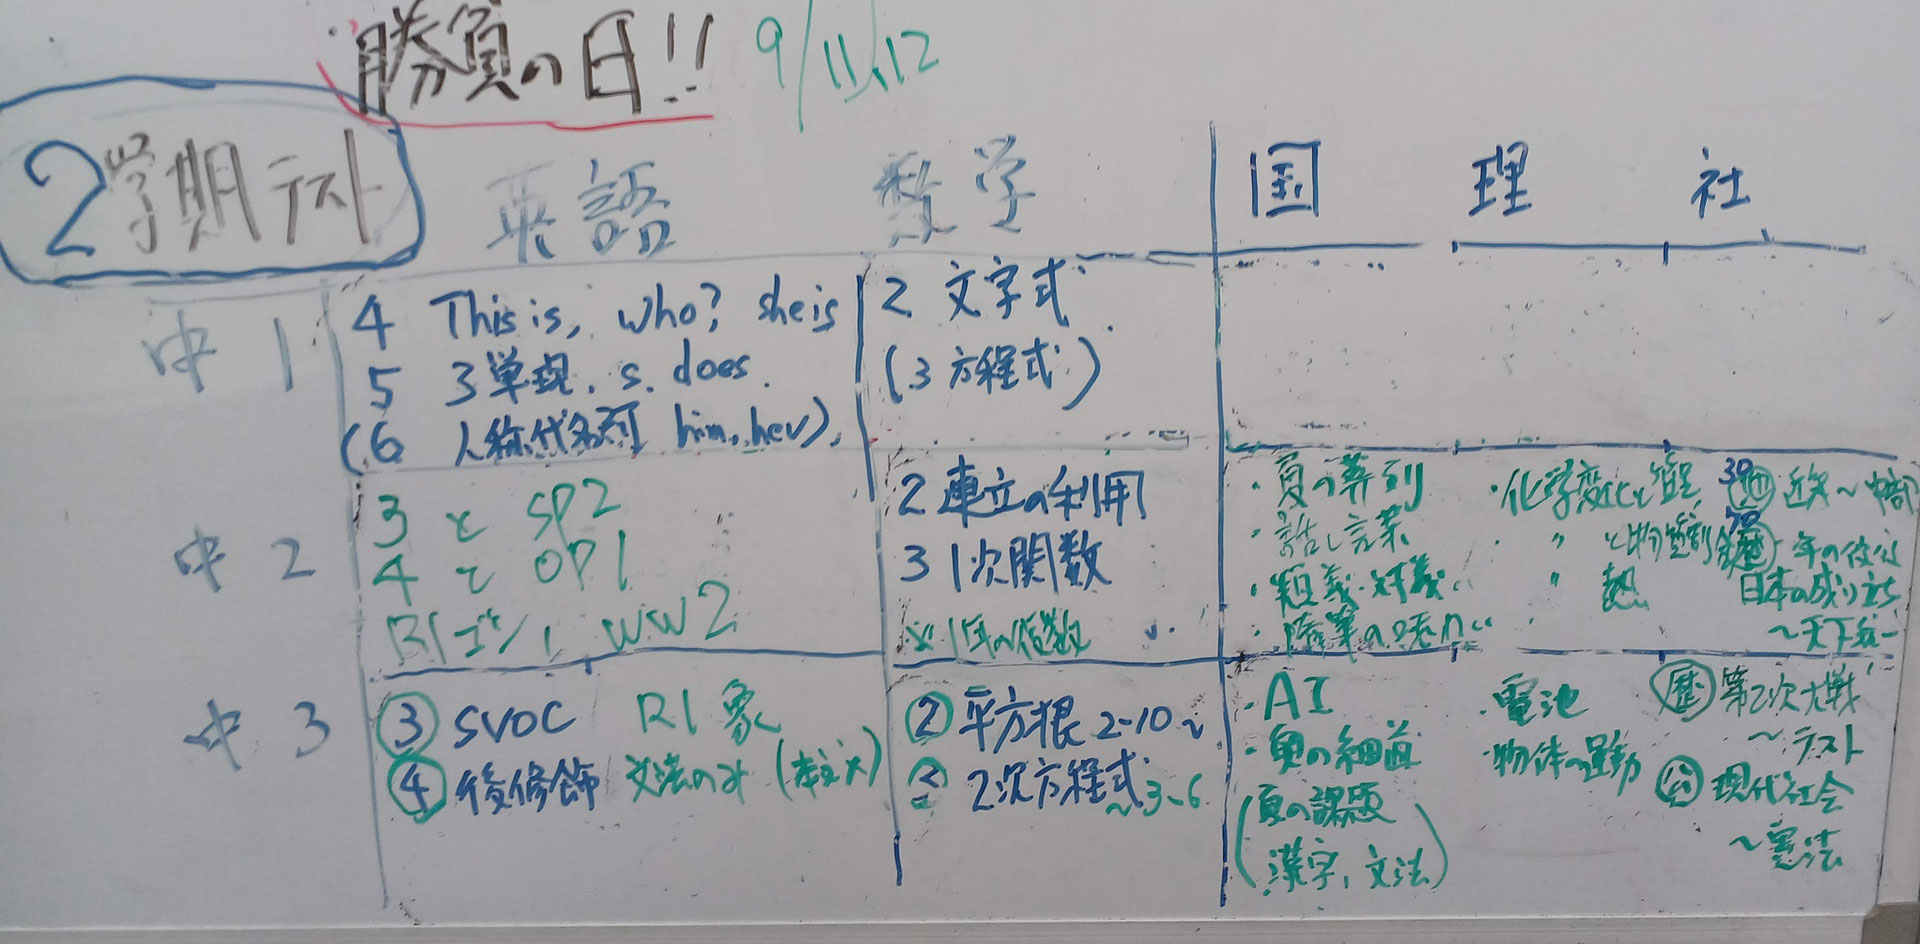 勝負の日!! 9/11,12
2学期テスト
英語 数学 国 理 社
中1
4 This is, who? she is
5 3単現. s. does.
(6 人称代名詞 him, her).
2 文字式
(3 方程式)
中2
3 と SP2
4 と OP1
R1 ゴン, WW2
2 連立の利用
3 1次関数
・夏の葬列
・話し言葉
・類義・対義
・化学変化と
〃 熱
30 地
70 歴
日本の成り立ち
~天下統一
中3
③ SVOC R1 象
④ 後修飾 文法のみ (本文×)
② 平方根 2-10~
③ 2次方程式
~3-6
・AI
・奥の細道
(夏の課題
漢字, 文法)
・電池
・物体の運動
歴 第2次大戦
~テスト
公 現代社会
~憲法